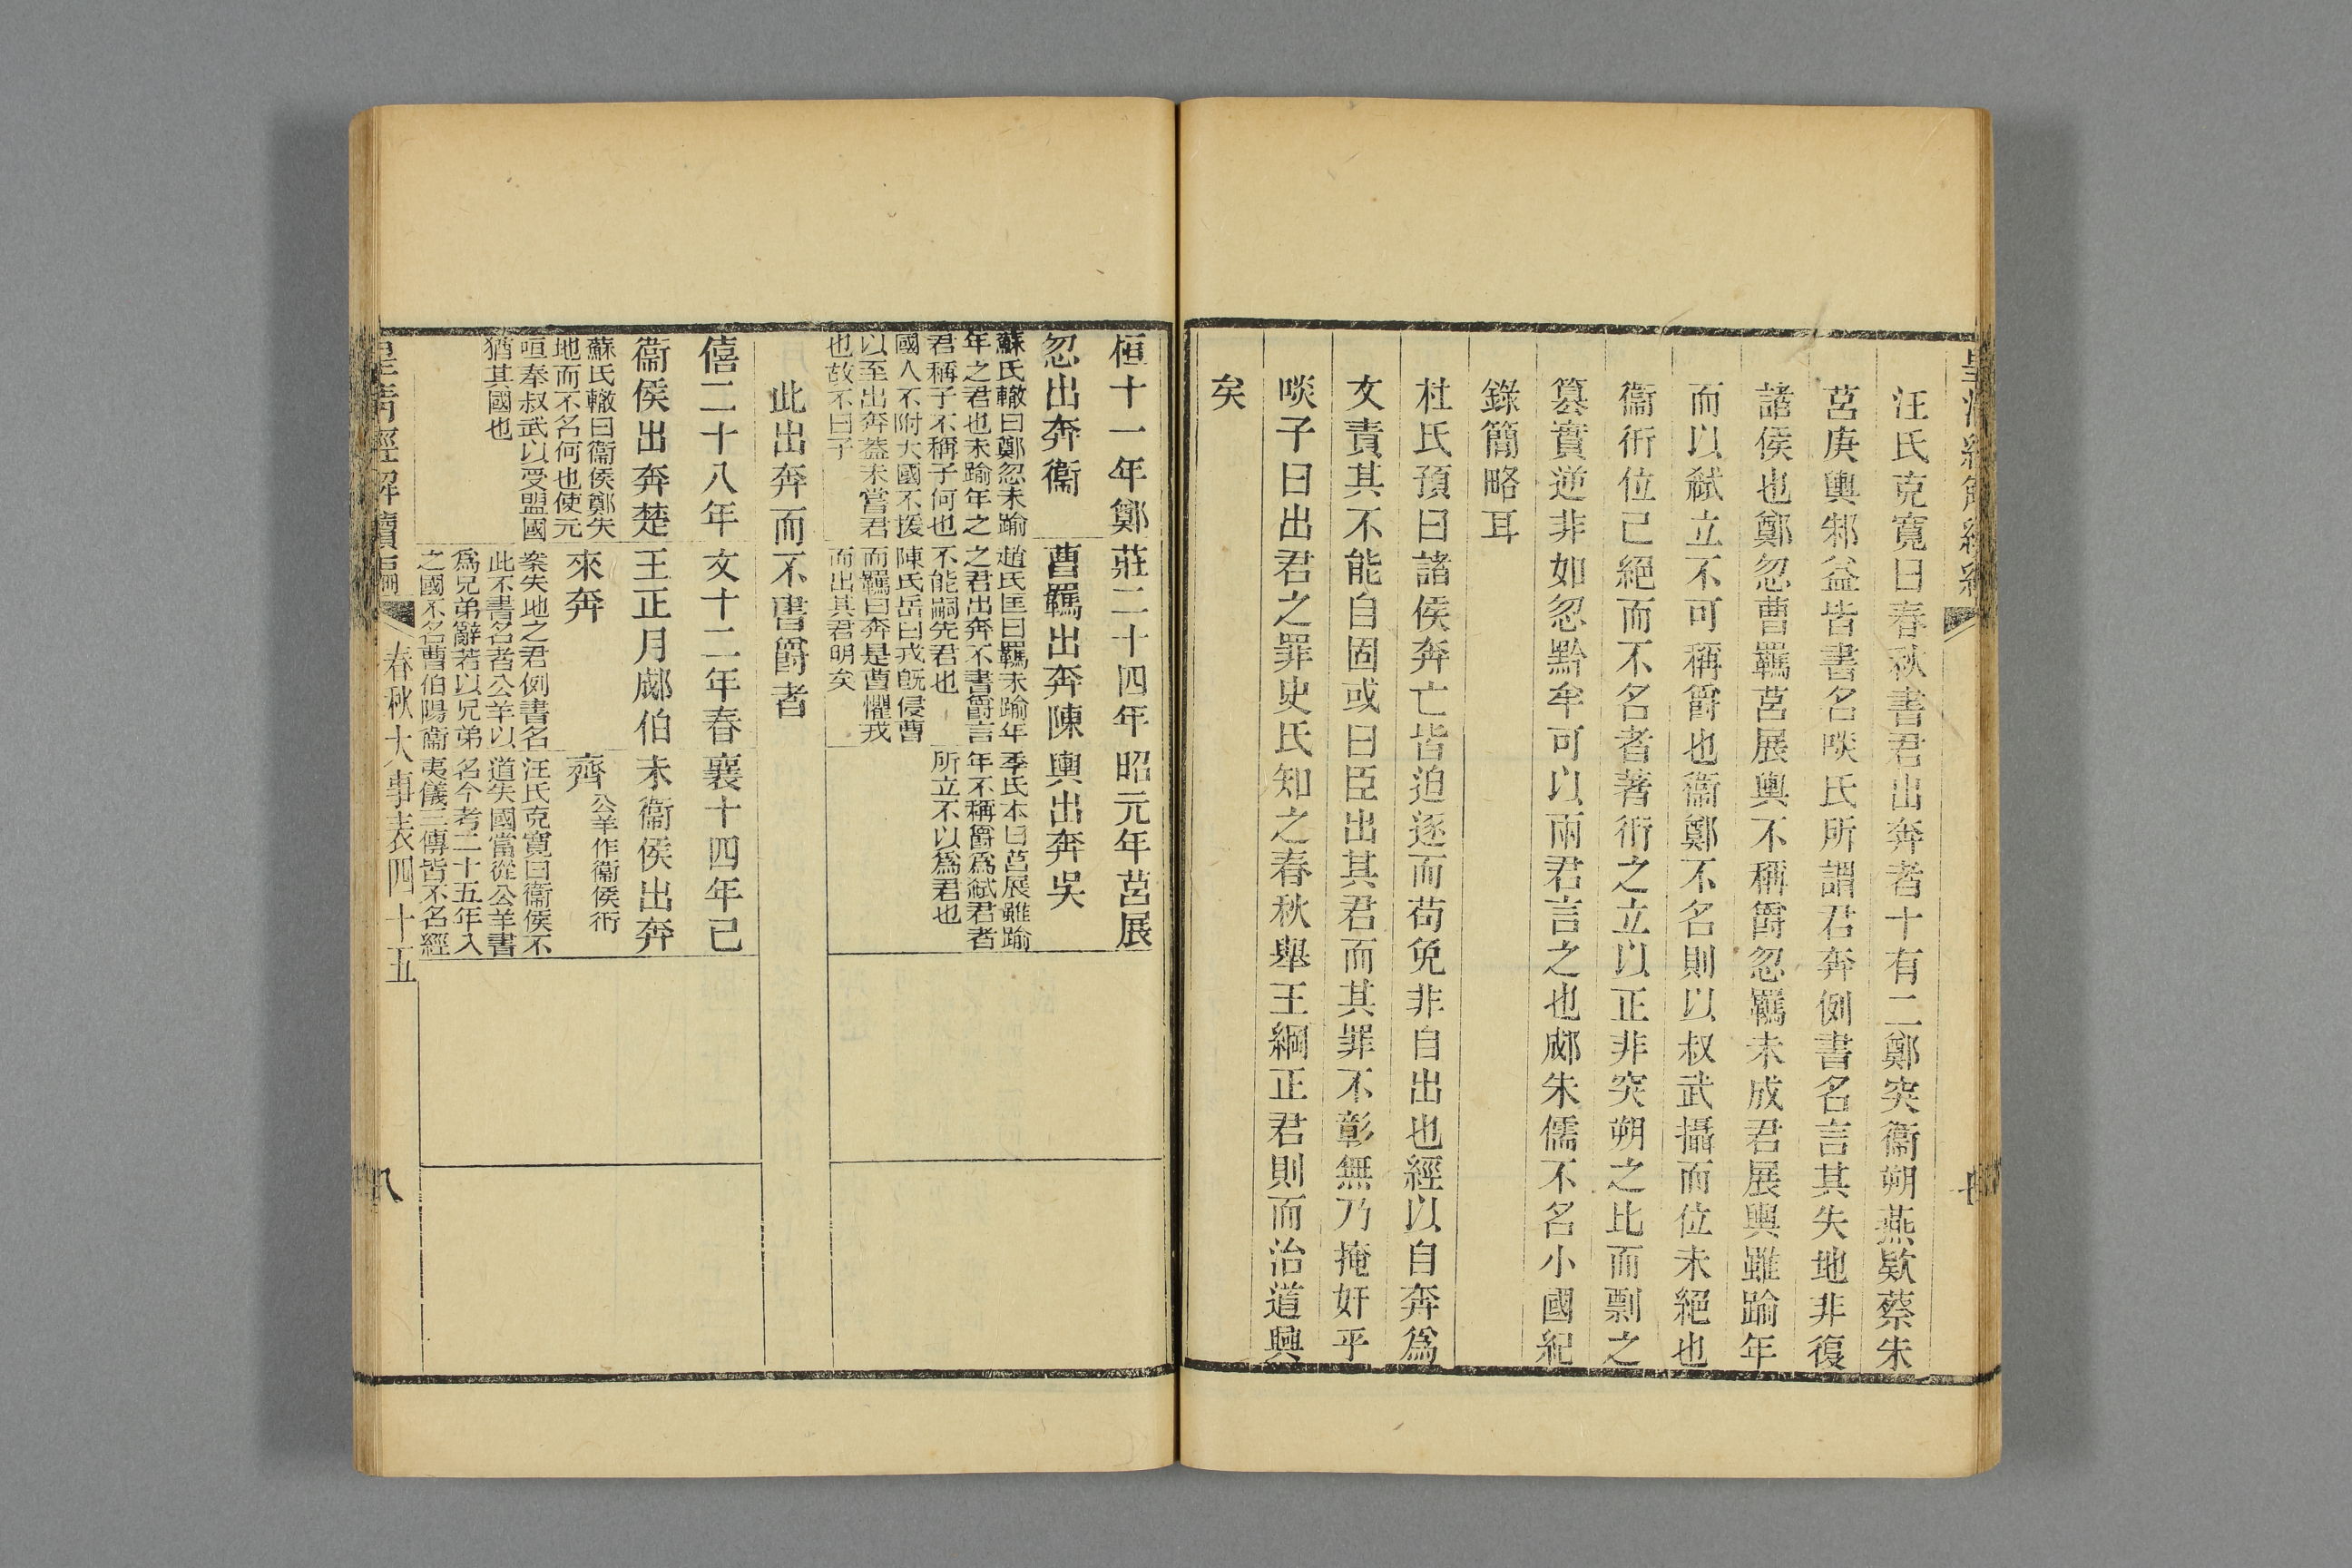 汪氏克寬曰春秋書君出奔者十有二鄭突衞朔燕欵蔡朱
莒庚輿邾益皆書名啖氏所謂君奔例書名言其失地非復
諸侯也鄭忽曹羈莒展輿不稱爵忽羈未成君展輿雖踰年
而以弑立不可稱爵也衞鄭不名則以叔武攝而位未絕也
衞衎位已絕而不名者著衎之立以正非突朔之比而剽之
篡實逆非如忽黔牟可以兩君言之也郕朱儒不名小國紀
錄簡略耳
杜氏預曰諸侯奔亡皆迫逐而茍免非自出也經以自奔爲
文責其不能自固或曰臣出其君而其罪不彰無乃掩奸乎
啖子曰出君之罪史氏知之春秋舉王綱正君則而治道興
矣
桓十一年鄭
忽出奔衞
蘇氏轍曰鄭忽未踰
年之君也未踰年之
君稱子不稱子何也
國人不附大國不援
以至出奔葢未嘗君
也故不曰子
莊二十四年
曹羈出奔陳
趙氏匡曰羈未踰年
之君出奔不書爵言
不能嗣先君也
陳氏岳曰戎旣侵曹
而羈曰奔是曹懼戎
而出其君明矣
昭元年莒展
輿出奔吳
季氏本曰莒展雖踰
年不稱爵爲弑君者
所立不以爲君也
此出奔而不書爵者
僖二十八年
衞侯出奔楚
蘇氏轍曰衞侯鄭失
地而不名何也使元
咺奉叔武以受盟國
猶其國也
文十二年春
王正月郕伯
來奔
案失地之君例書名
此不書名者公羊以
爲兄弟辭若以兄弟
之國不名曹伯陽衞
襄十四年己
未衞侯出奔
齊公羊作衞侯衎
汪氏克寬曰衞侯不
道失國當從公羊書
名今考二十五年入
夷儀三傳皆不名經
皇清經解續編
春秋大事表四十五
八